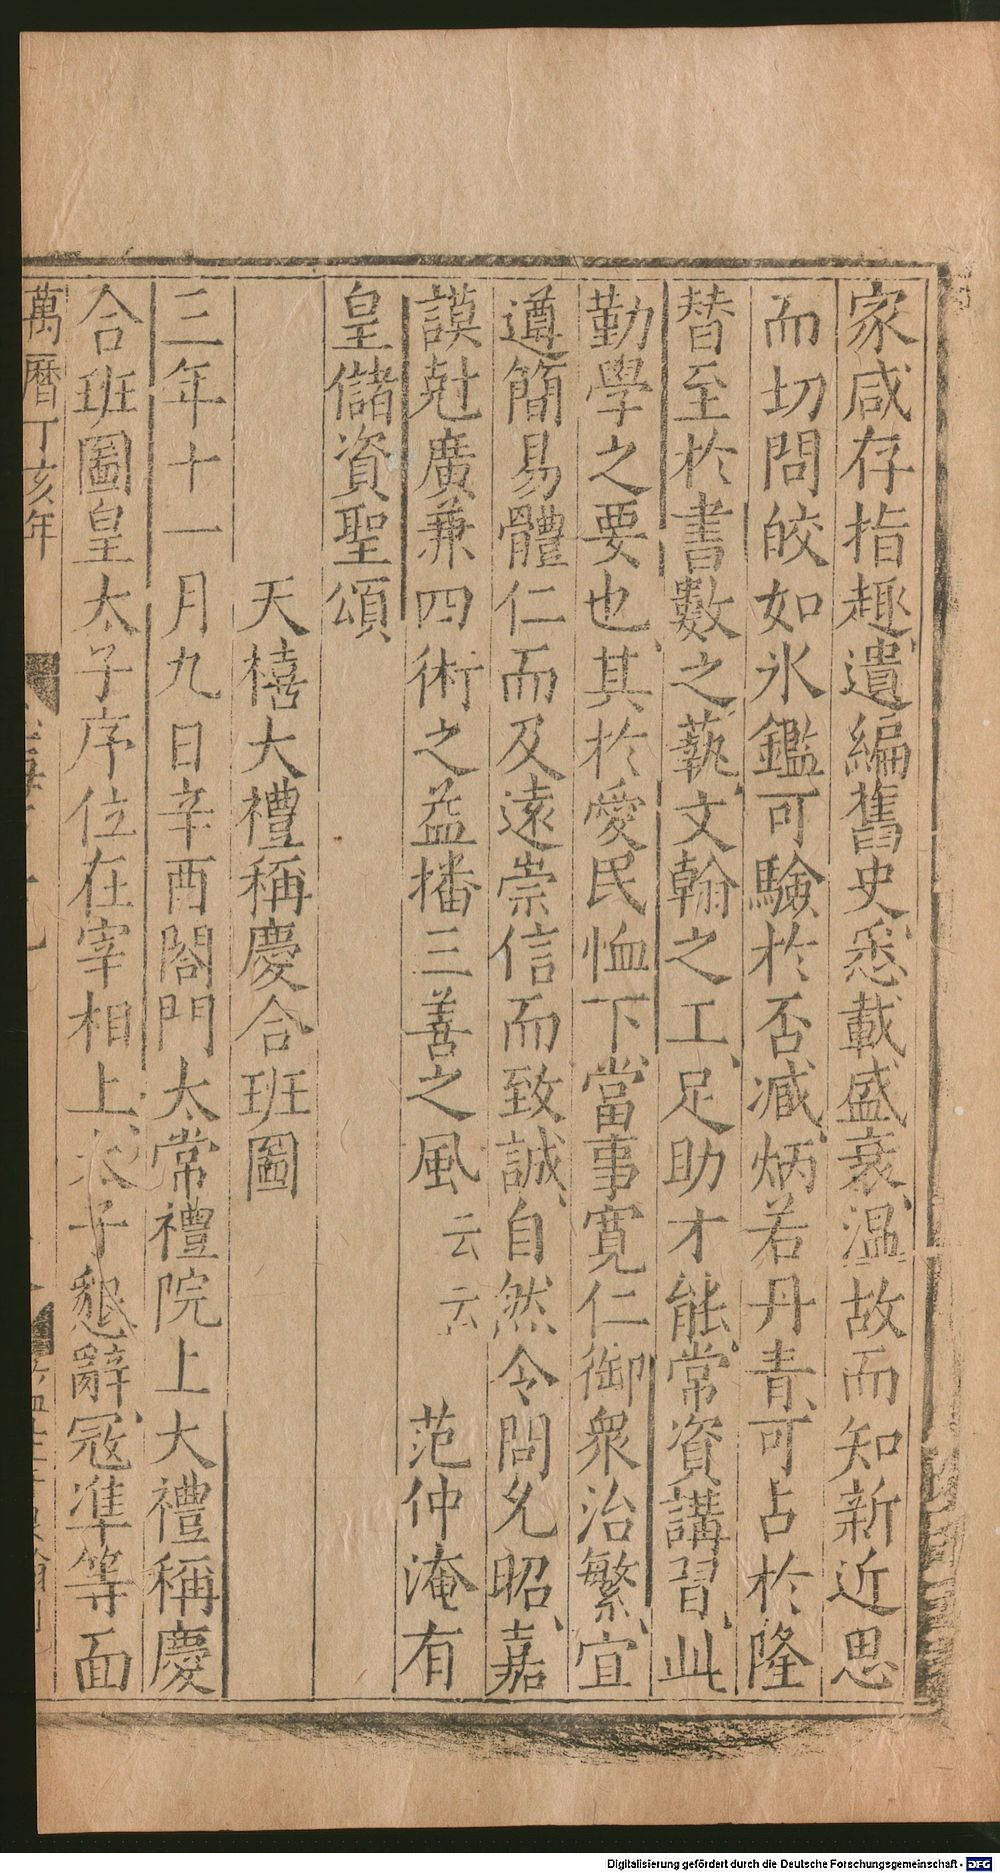 家咸存指趣遺編舊史悉載盛衰溫故而知新近思
而切問皎如氷鑑可驗於否臧炳若丹青可占於隆
替至於書數之藝文翰之工足助才能常資講習此
勤學之要也其於愛民恤下當事寛仁御衆治繁宜
遵簡易體仁而及遠崇信而致誠自然令問允昭嘉
謨尅廣兼四術之益播三善之風云云 范仲淹有
皇儲資聖頌
天禧大禮稱慶合班圖
三年十一月九日辛酉閤門太常禮院上大禮稱慶
合班圖皇太子序位在宰相上太子懇辭冦準等面
萬曆丁亥年
Digitalisierung gefördert durch die Deutsche Forschungsgemeinschaft - DFG